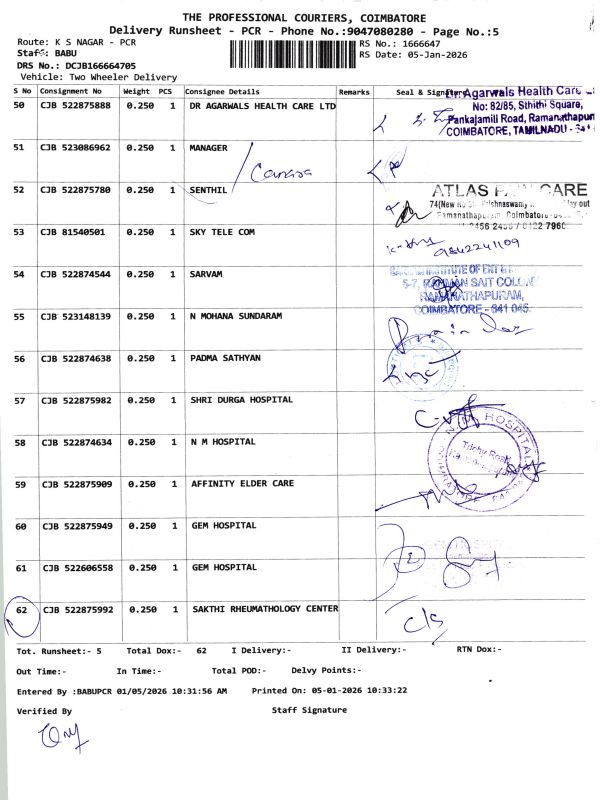 THE PROFESSIONAL COURIERS, COIMBATORE
Delivery Runsheet - PCR - Phone No.:9047080280 - Page No.:5
Route: K S NAGAR - PCR RS No.: 1666647
Staff: BABU RS Date: 05-Jan-2026
DRS No.: DCJB166664705
Vehicle: Two Wheeler Delivery
S No Consignment No Weight PCS Consignee Details Remarks Seal & Signature
50 CJB 522875888 0.250 1 DR AGARWALS HEALTH CARE LTD
Agarwals Health Care
No: 82/85, Sthithi Square,
Pankajamill Road, Ramanathapur
COIMBATORE, TAMILNADU - 641
51 CJB 523086962 0.250 1 MANAGER
Canara
52 CJB 522875780 0.250 1 SENTHIL
ATLAS PAIN CARE
Ramanathapuram, Coimbatore
2456 2456 / 0122 7960
53 CJB 81540501 0.250 1 SKY TELE COM
9842241109
54 CJB 522874544 0.250 1 SARVAM
INSTITUTE OF
5-7, RAHMAN SAIT COLONY
RAMANATHAPURAM,
COIMBATORE - 641 045.
55 CJB 523148139 0.250 1 N MOHANA SUNDARAM
56 CJB 522874638 0.250 1 PADMA SATHYAN
57 CJB 522875982 0.250 1 SHRI DURGA HOSPITAL
58 CJB 522874634 0.250 1 N M HOSPITAL
N M HOSPITAL
Trichy Road
59 CJB 522875909 0.250 1 AFFINITY ELDER CARE
60 CJB 522875949 0.250 1 GEM HOSPITAL
61 CJB 522606558 0.250 1 GEM HOSPITAL
62 CJB 522875992 0.250 1 SAKTHI RHEUMATHOLOGY CENTER
Tot. Runsheet:- 5 Total Dox:- 62 I Delivery:- II Delivery:- RTN Dox:-
Out Time:- In Time:- Total POD:- Delvy Points:-
Entered By :BABUPCR 01/05/2026 10:31:56 AM Printed On: 05-01-2026 10:33:22
Verified By Staff Signature